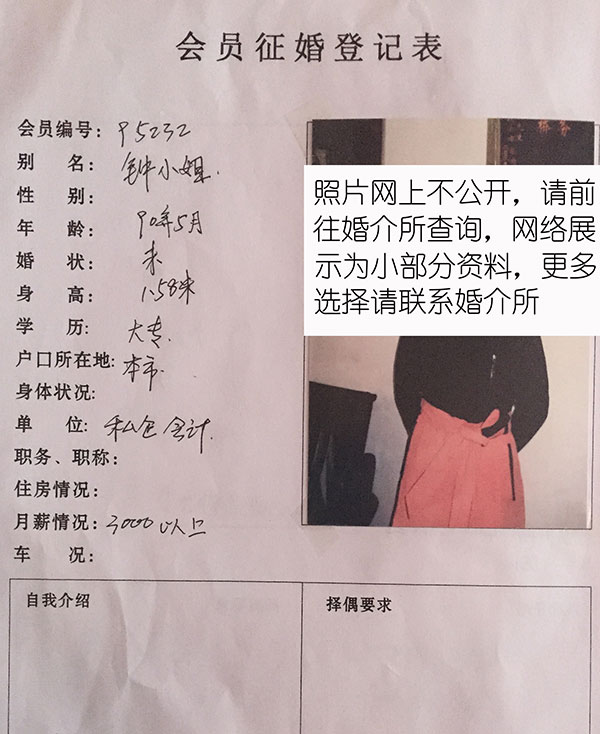 会员征婚登记表
会员编号: P5232
别 名: 钟小姐.
性 别:
年 龄: 90年5月
婚 状: 未
身 高: 1.58米
学 历: 大专.
户口所在地: 本市.
身体状况:
单 位: 私企 会计.
职务、职称:
住房情况:
月薪情况: 3000以上
车 况:
照片网上不公开，请前
往婚介所查询，网络展
示为小部分资料，更多
选择请联系婚介所
自我介绍
择偶要求